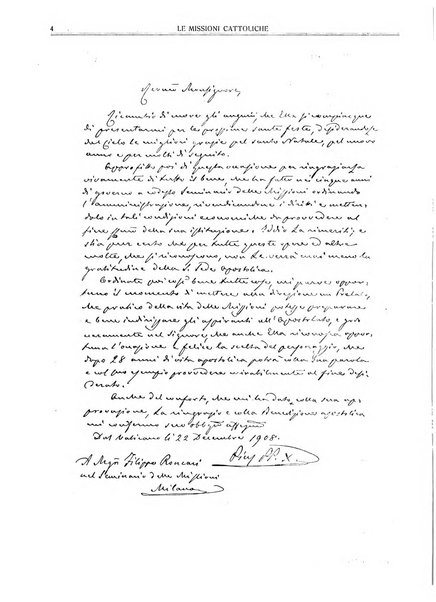 4
LE MISSIONI CATTOLICHE
Monsignore,
Ricambio di cuore gli auguri, che Ella si compiacque
di presentarmi per le prossime sante feste,
dal Cielo le migliori grazie pel santo Natale, pel nuovo
anno e per molti di seguito.
Approfitto poi di questa occasione per ringraziarla
vivamente di tutto il bene, che ha fatto nei cinque anni
di governo a codesto Seminario delle Missioni ordinando
l'amministrazione, rivendicandone i diritti e metten-
dolo in tali condizioni economiche da provvedere al
fine della sua istituzione. Iddio La rimeriti; e
stia pur certo che per tutte queste opere ed altre
molte, che si riconoscono, non Le verrà mai meno la
gratitudine della S. Sede Apostolica.
Ordinate poi così bene tutte cose, mi parve oppor-
tuno il momento di mettere alla direzione un Prelato,
che pratico della vita delle Missioni potesse preparare
e bene indirizzare gli aspiranti all'Apostolato, e godo
veramente nel Signore, che anche Ella riconosca oppor-
tuna l'occasione e felice la scelta del personaggio, che
dopo 28 anni di vita apostolica potrà colla sua parola
e col suo esempio provvedere mirabilmente al fine desi-
derato.
Anche del conforto, che mi ha dato colla sua ap-
provazione, La ringrazio e colla Benedizione apostolica
mi confermo suo
Dal Vaticano li 22 Decembre 1908.
A Mgr. Filippo Roncari
nel Seminario delle Missioni
Milano
Pius PP. X.